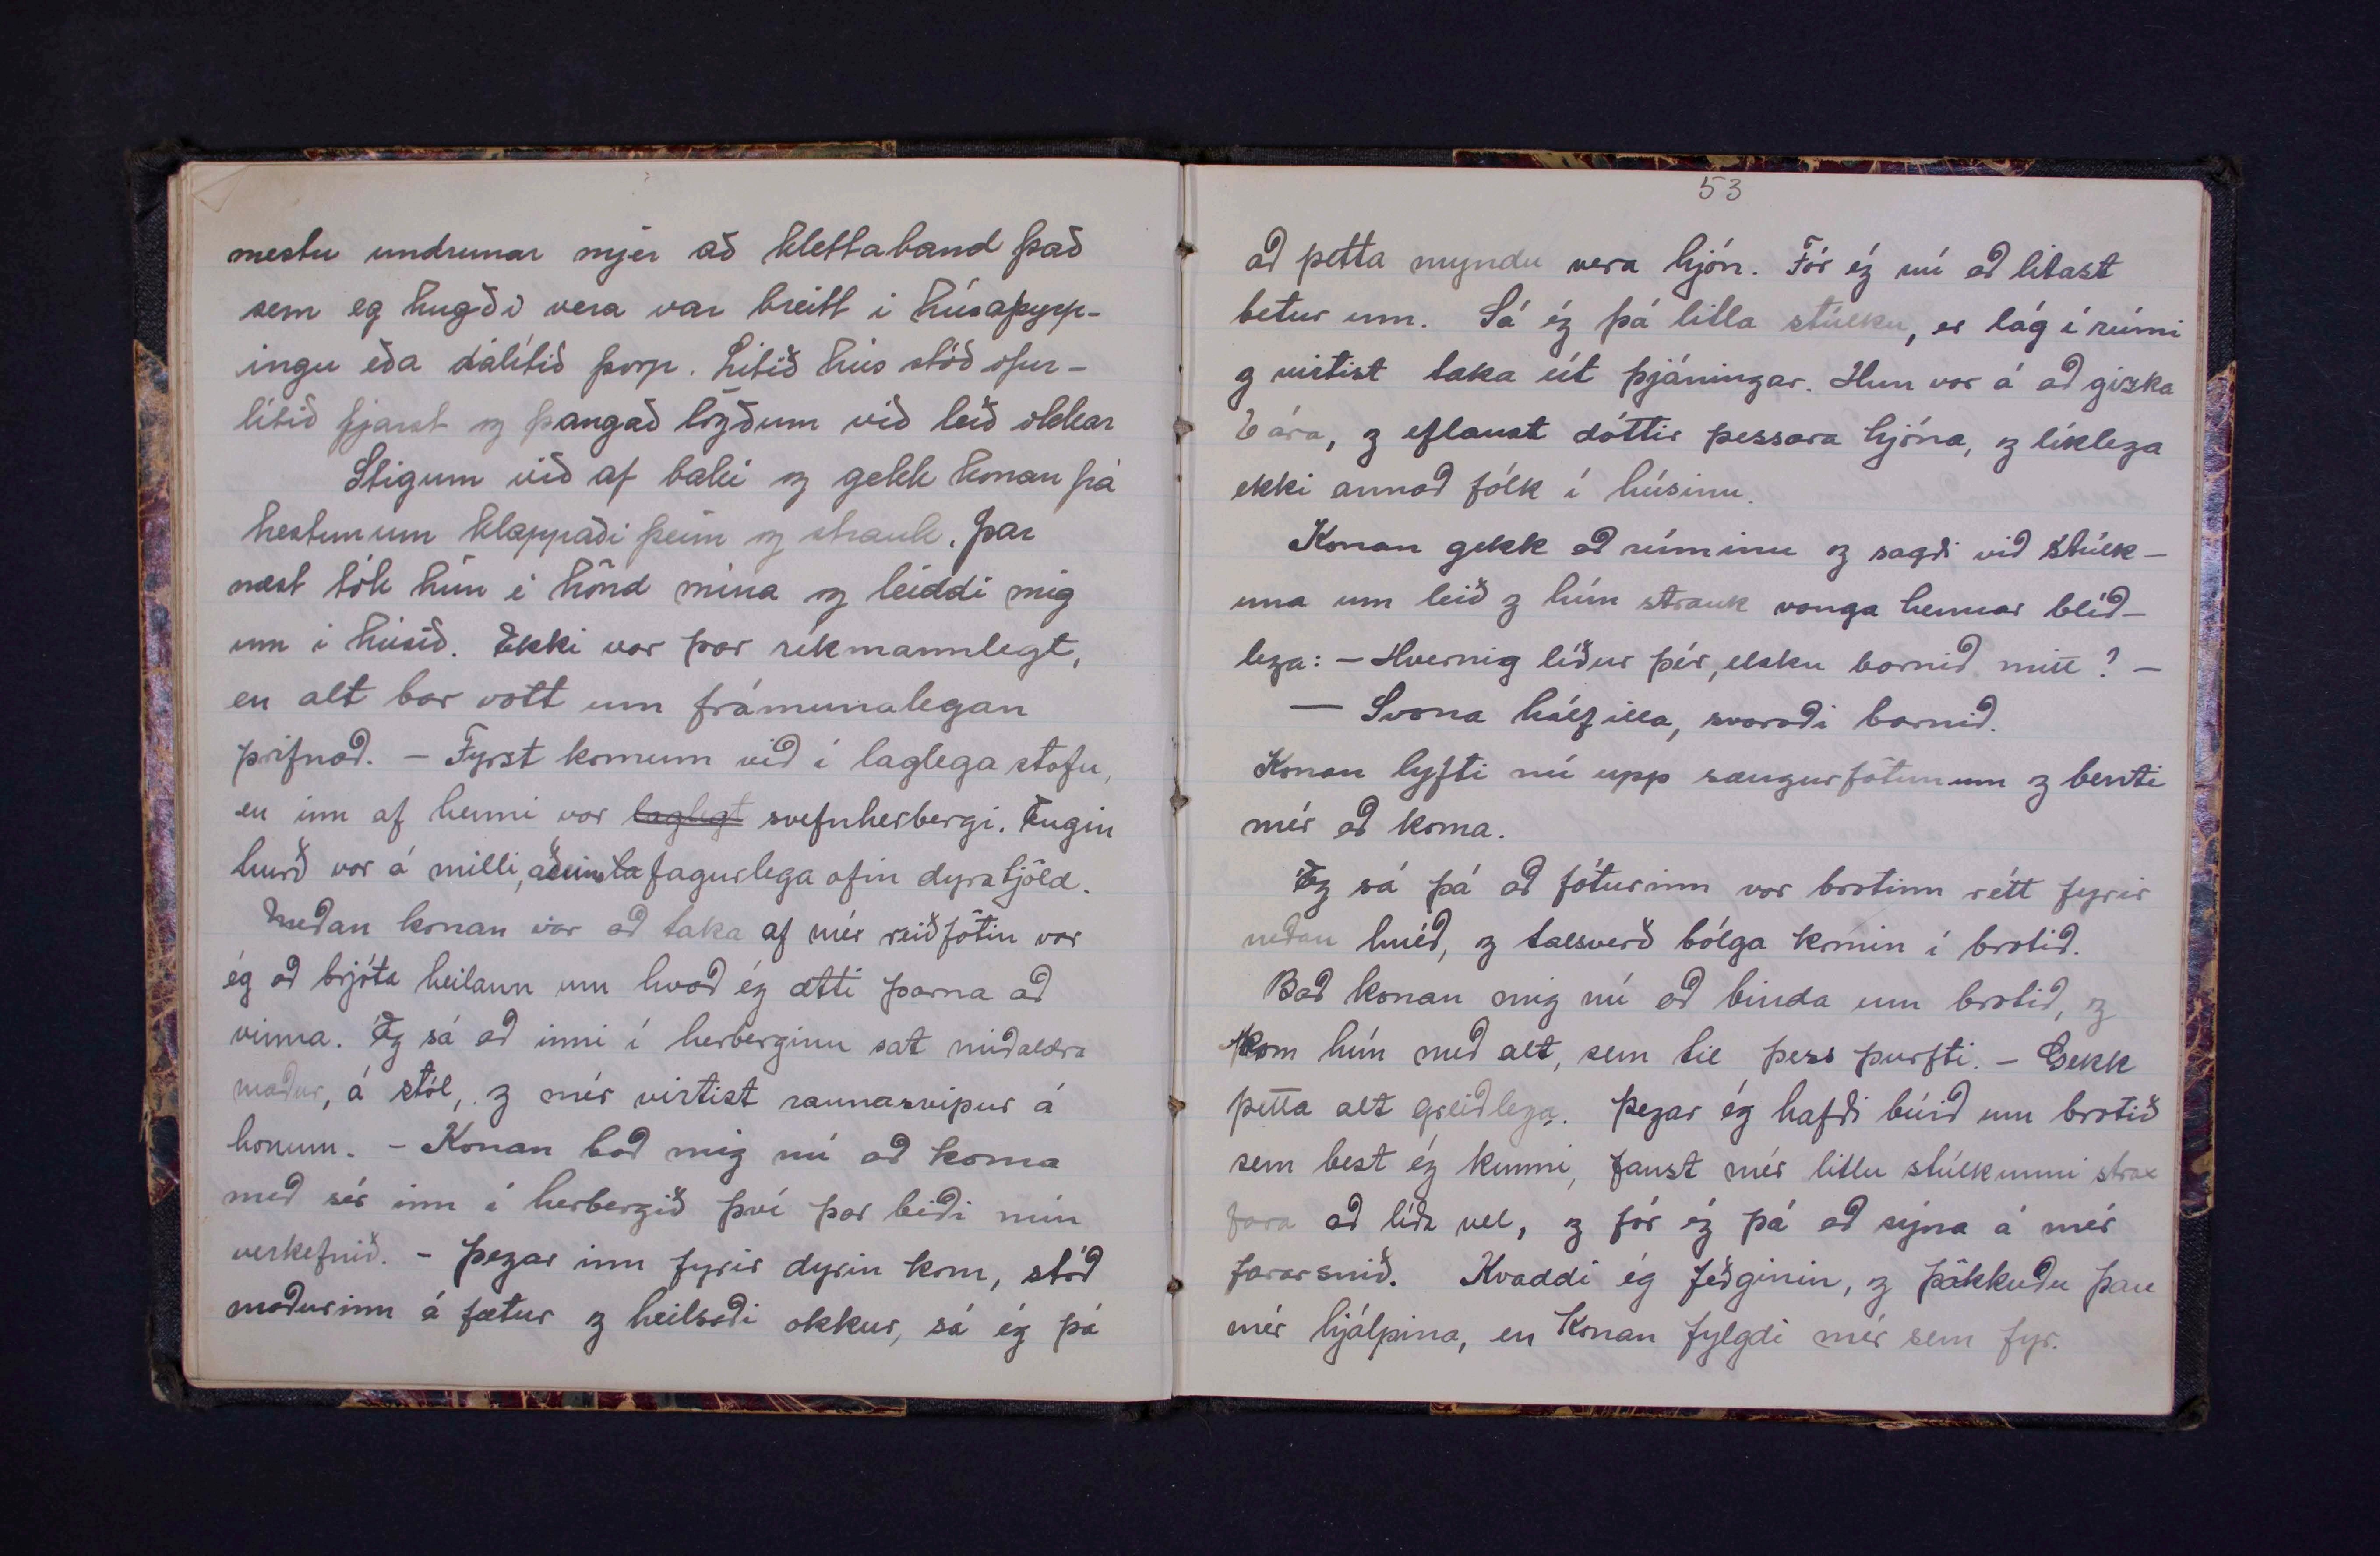 mestu undrunar mjer að klettaband það
sem eg hugði vera var breitt i húsaþyrp-
ingu eða dálítið þorp. Litið hús stóð ofur-
lítið fjarst og þangað lögðum við leið okkar
Stigum við af baki og gekk konan frá
hestunum klappaði þeim og strauk. Þar
næst tók hún i hönd mína og leiddi mig
inn i húsið. Ekki var þar ríkmannlegt,
en alt bar vott um frámunalegan
þrifnað. - Fyrst komum við í laglega stofu,
en inn af henni var laglegt svefnherbergi. Engin
hurð var á milli, aðeins fagurlega ofin dyratjöld.
Meðan konan var að taka af mér reiðfötin var
ég að brjóta heilann um hvað ég ætti þarna að
vinna. Ég sá að inni í herberginu sat miðaldra
maður, á stól, og mér virtist raunasvipur á
honum. - Konan bað mig nú að koma
með sér inn í herbergið því þar biði mín
verkefnið. - Þegar inn fyrir dyrin kom, stóð
maðurinn á fætur og heilsaði okkur, sá ég þá
53
að þetta myndu vera hjón. Fór ég nú að litast
betur um. Sá ég þá litla stúlku, er lág í rúmi
og virtist taka út þjáningar. Hun var á að gizka
6 ára, og eflaust dóttir þessara hjóna, og líklega
ekki annað fólk í húsinu.
Konan gekk að rúminu og sagði við stúlk-
una um leið og hún strauk vanga hennar blíð-
lega: - Hvernig líður þér, elsku barnið mitt? -
- Svona hálf illa, svaraði barnið.
Konan lyfti nú upp sængurfötunum og benti
mér að koma.
Ég sá þá að fóturinn var brotinn rétt fyrir
neðan hnéð, og talsverð bólga komin í brotið.
Bað konan mig nú að binda um brotið, og
kom hún með alt, sem til þess þurfti. - Gekk
þetta alt greiðlega. Þegar ég hafði búið um brotið
sem best ég kunni, fanst mér litlu stúlkunni strax
fara að líða vel, og fór ég þá að sýna á mér
fararsnið. Kvaddi ég feðginin, og þökkuðu þau
mér hjálpina, en Konan fylgdi mér sem fyr.